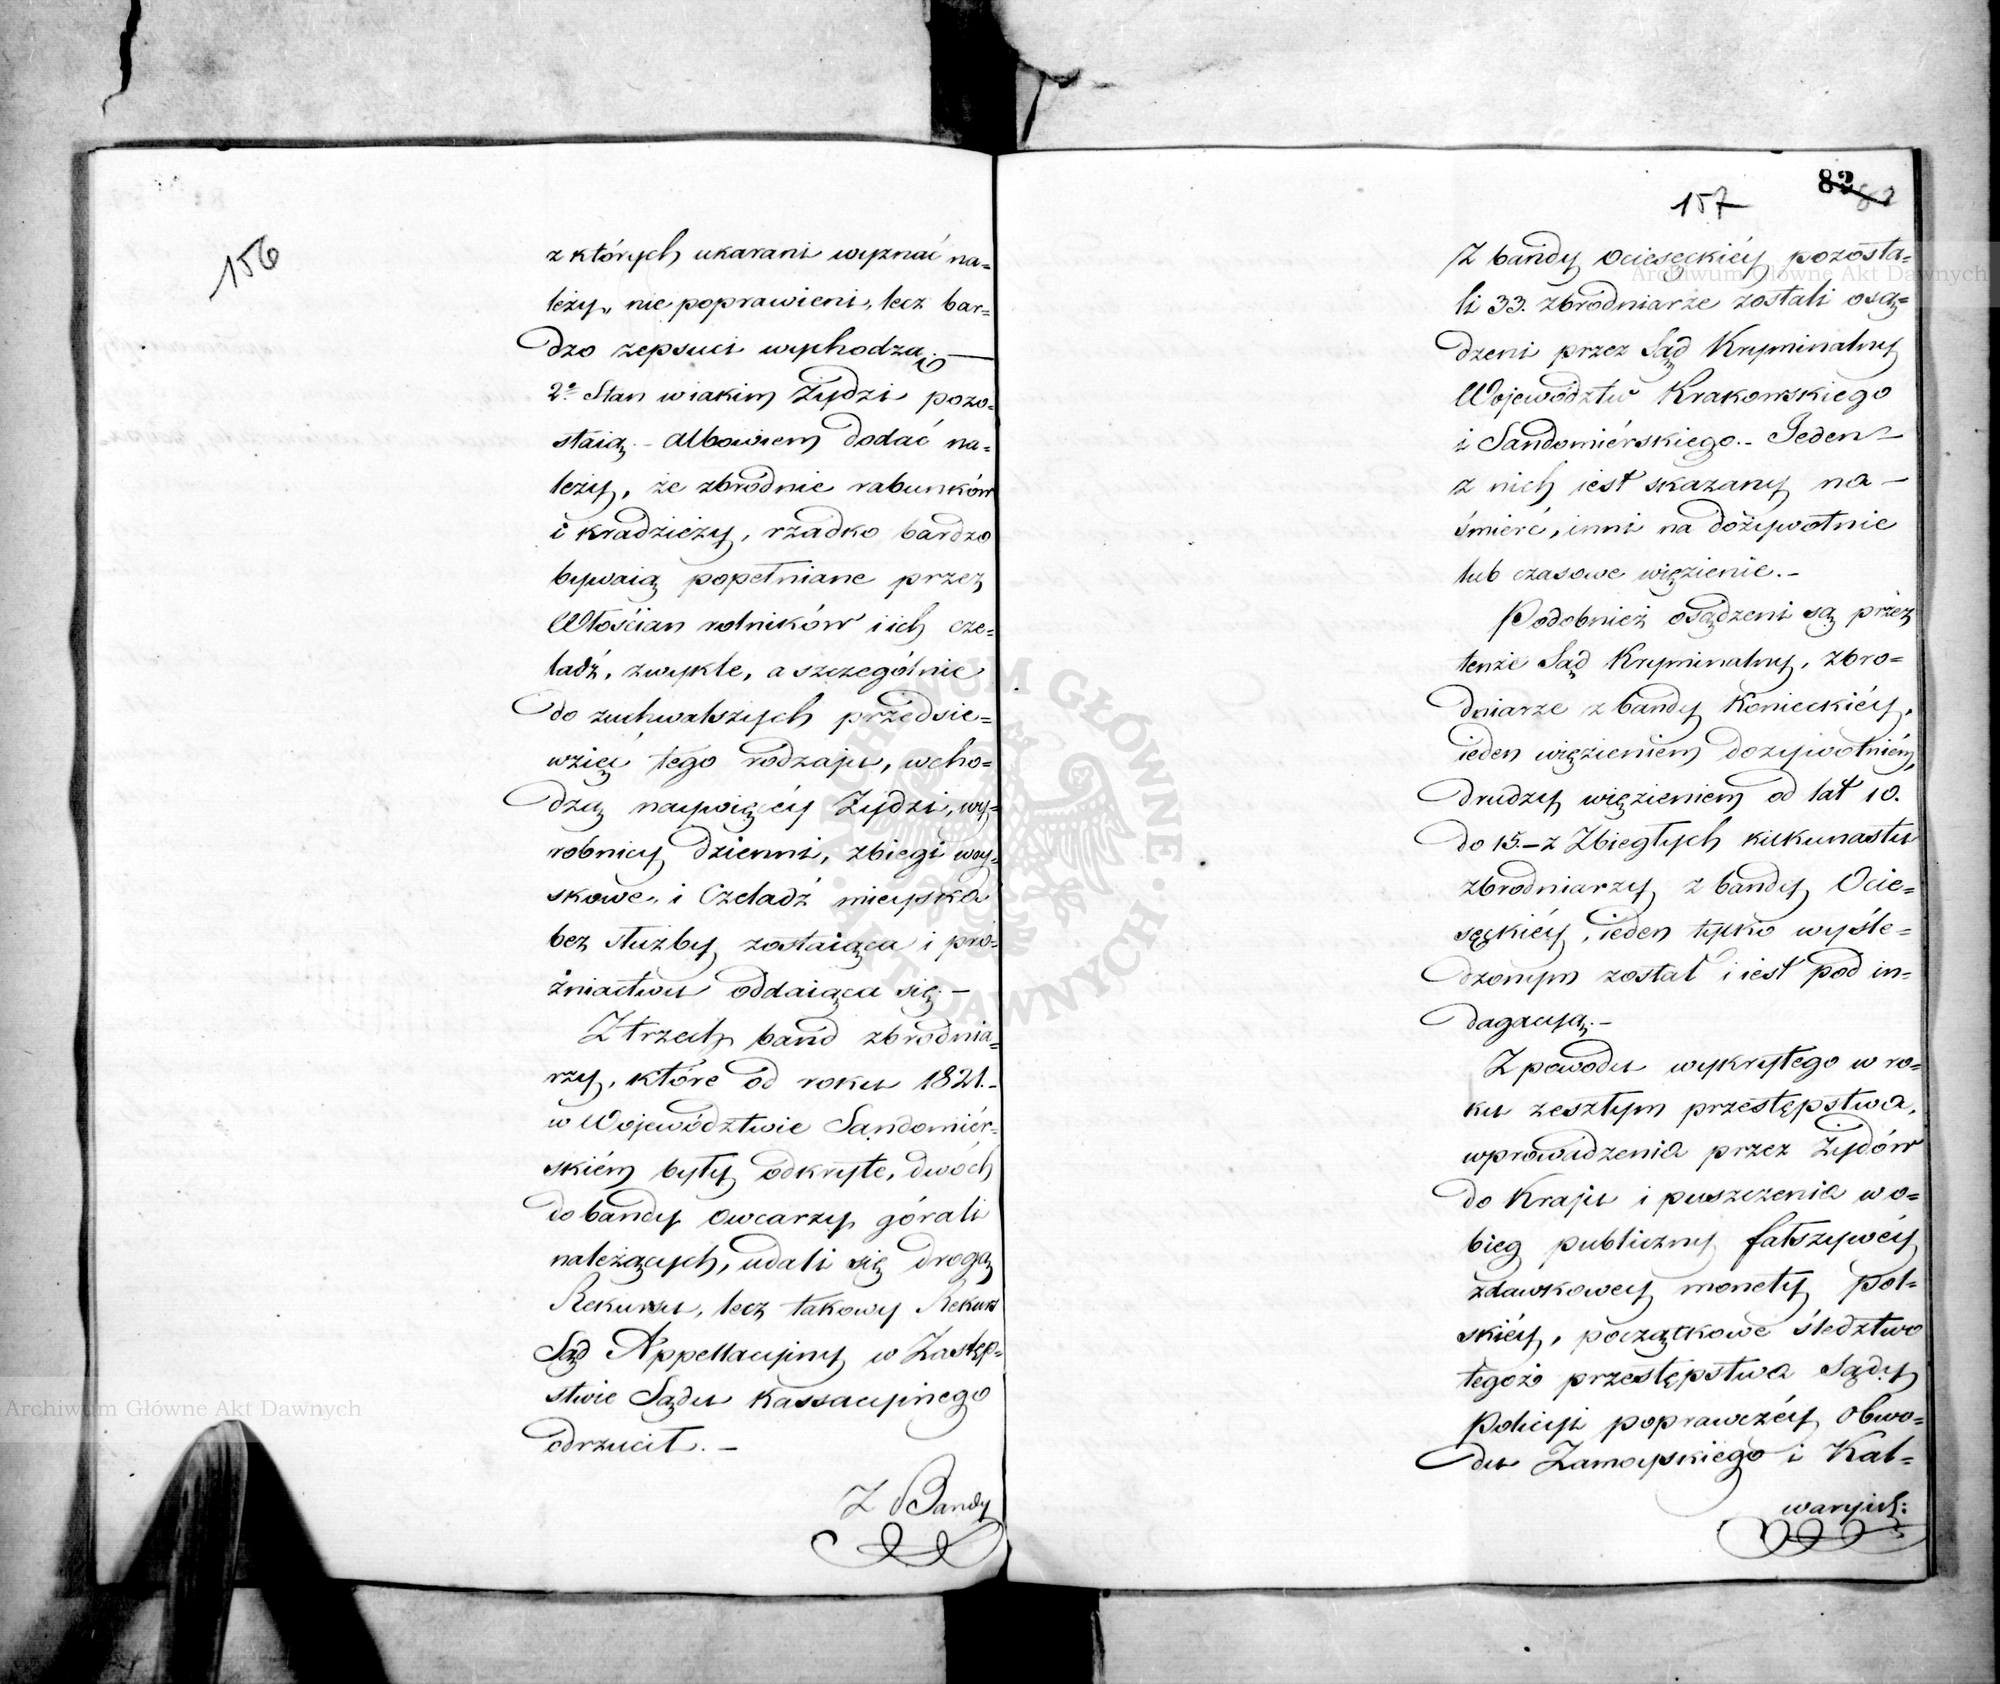 156
z których ukarani wyznać na=
leży, nie poprawieni, lecz bar=
dzo zepsuci wychodzą. —
2º Stan w iakim Żydzi pozo=
staią. - Albowiem dodać na=
leży, że zbrodnie rabunków
i kradzieży, rzadko bardzo
bywaią popełniane przez
Włościan rolników i ich cze=
ladź, zwykle, a szczególnie
do zuchwalszych przedsie=
wzięć tego rodzaju, wcho=
dzą naywięcéy Żydzi, wy=
robnicy dzienni, zbiegi woy=
skowe, i Czeladź mieyska
bez służby zostaiąca i pró=
żniactwu oddaiąca się. —
Z trzech band zbrodnia=
rzy, które od roku 1821. -
w Województwie Sandomiér=
skiém były odkryte, dwóch
do bandy Owcarzy górali
należących, udali się drogą
Rekursu, lecz takowy Rekurs
Sąd Appellacyjny w Zastęp=
stwie Sądu Kassacyjnego
odrzucił. —
Z Bandy
82
82
157
Z bandy Ocieseckiéy pozosta=
li 33. zbrodniarze zostali osą=
dzeni przez Sąd Kryminalny
Województw Krakowskiego
i Sandomiérskiego. - Jeden —
z nich iest skazany na —
śmierć, inni na dożywotnie
lub czasowe więzienie. -
Podobnież osądzeni są przez
tenże Sąd Kryminalny, zbro=
dniarze z bandy Konieckiéy,
ieden więzieniem dożywotniém,
drudzy więzieniem od lat 10.
do 15. - z Zbiegłych kilkunastu
zbrodniarzy z bandy Ocie=
sęckiéy, ieden tylko wyśle=
dzonym został i iest pod in=
dagacyą. -
Z powodu wykrytego w ro=
ku zeszłym przestępstwa,
wprowadzenia przez Żydów
do Kraju i puszczenia w o=
bieg publiczny fałszywéy
zdawkowey monety Pol=
skiéy, początkowe śledztwo
tegoż przestępstwa Sądy
Policyi poprawczéy Obwo=
du Zamoyskiego i Kal=
waryisk:
Archiwum Główne Akt Dawnych
Archiwum Główne Akt Dawnych
ARCHIWUM GŁÓWNE · AKT DAWNYCH ·